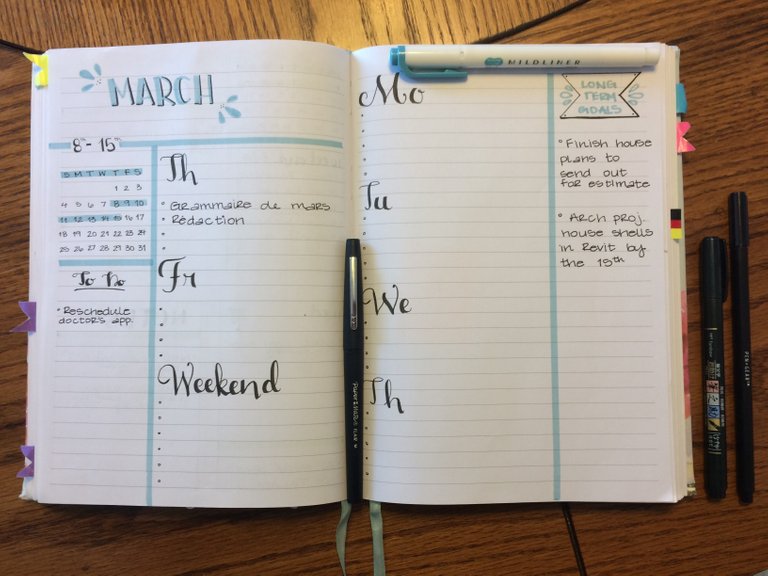 MARCH
8th - 15th
S M T W T F S
1 2 3
4 5 6 7 8 9 10
11 12 13 14 15 16 17
18 19 20 21 22 23 24
25 26 27 28 29 30 31
To Do
Reschedule
doctors app.
Th
Grammaire de mars
Rédaction
Fr
Weekend
Mo
Tu
We
Th
LONG
TERM
GOALS
Finish house
plans to
send out
for estimate
Arch proj.
house shells
in Revit by
the 15th
MILDLINER